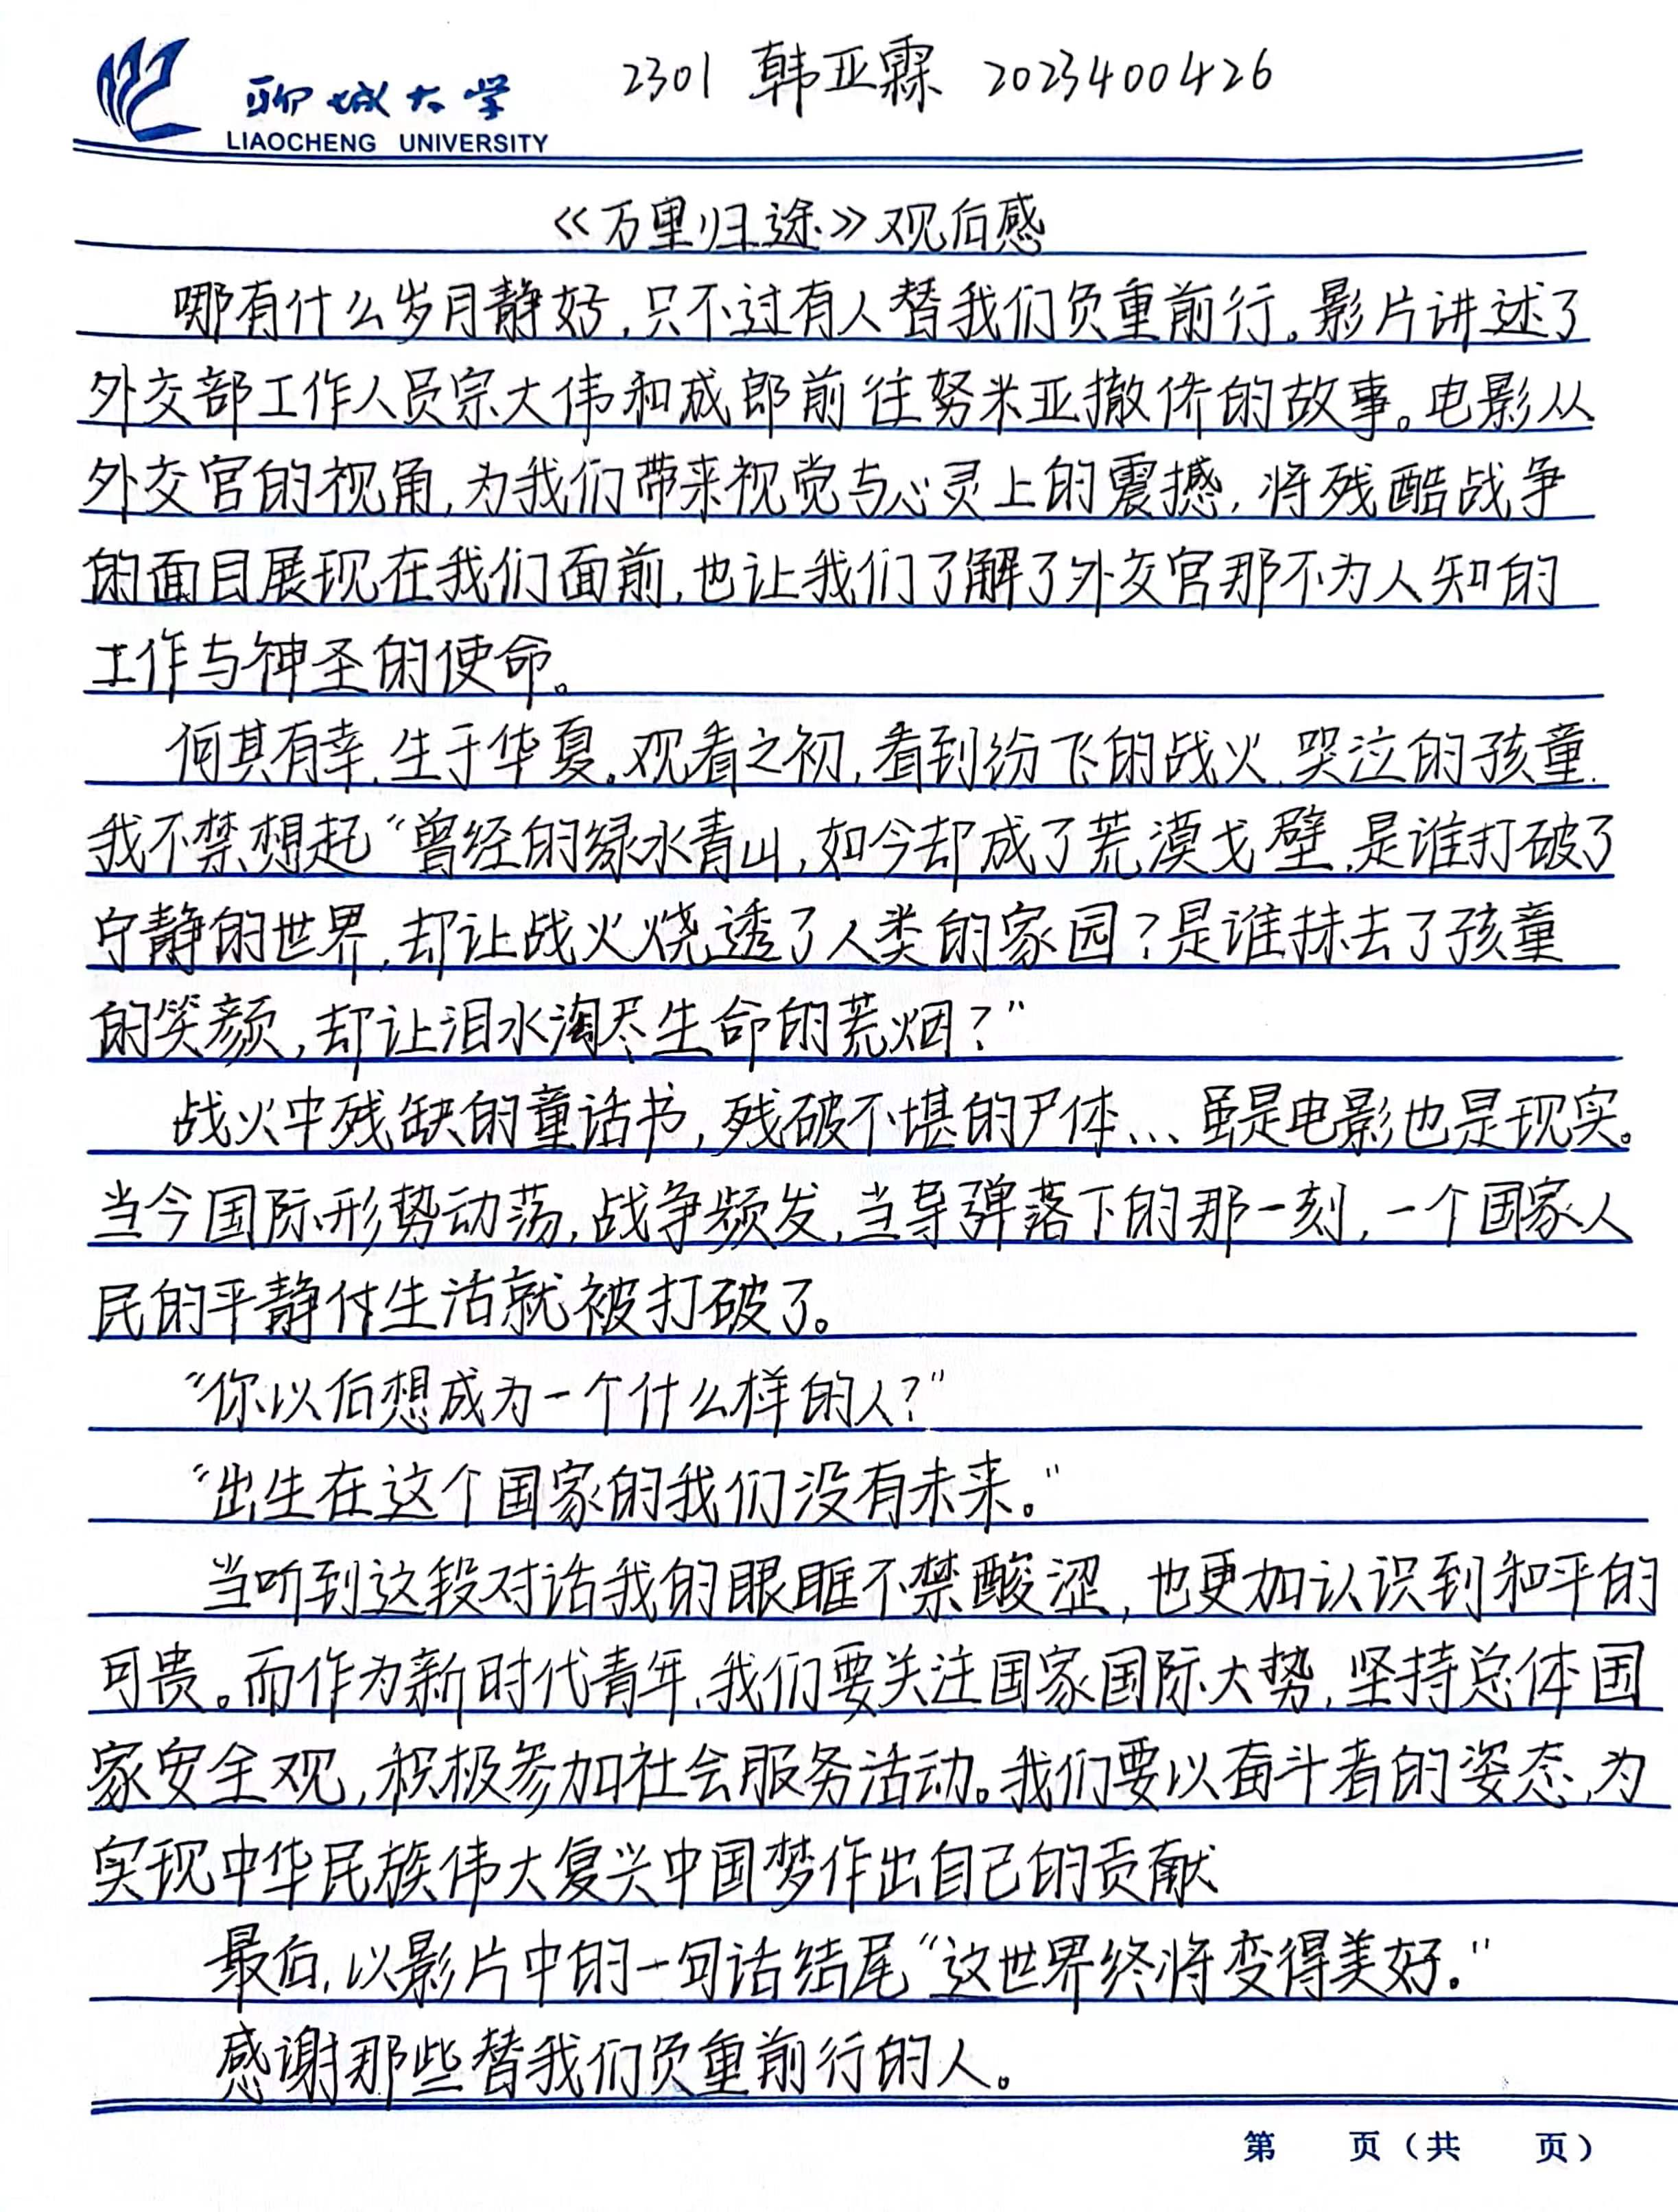 聊城大学 2301 韩亚霖 2023400426
LIAOCHENG UNIVERSITY
《万里归途》观后感
哪有什么岁月静好,只不过有人替我们负重前行。影片讲述了
外交部工作人员宗大伟和成郎前往努米亚撤侨的故事。电影从
外交官的视角,为我们带来视觉与心灵上的震撼,将残酷战争
的面目展现在我们面前,也让我们了解了外交官那不为人知的
工作与神圣的使命。
何其有幸,生于华夏。观看之初,看到纷飞的战火,哭泣的孩童,
我不禁想起“曾经的绿水青山,如今却成了荒漠戈壁,是谁打破了
宁静的世界,却让战火烧透了人类的家园?是谁抹去了孩童
的笑颜,却让泪水淘尽生命的荒烟?”
战火中残缺的童话书,残破不堪的尸体... 虽是电影也是现实。
当今国际形势动荡,战争频发,当导弹落下的那一刻,一个国家人
民的平静生活就被打破了。
“你以后想成为一个什么样的人?”
“出生在这个国家的我们没有未来。”
当听到这段对话我的眼眶不禁酸涩,也更加认识到和平的
可贵。而作为新时代青年,我们要关注国家国际大势,坚持总体国
家安全观,积极参加社会服务活动。我们要以奋斗者的姿态,为
实现中华民族伟大复兴中国梦作出自己的贡献
最后,以影片中的一句话结尾“这世界终将变得美好。”
感谢那些替我们负重前行的人。
第 页(共 页)